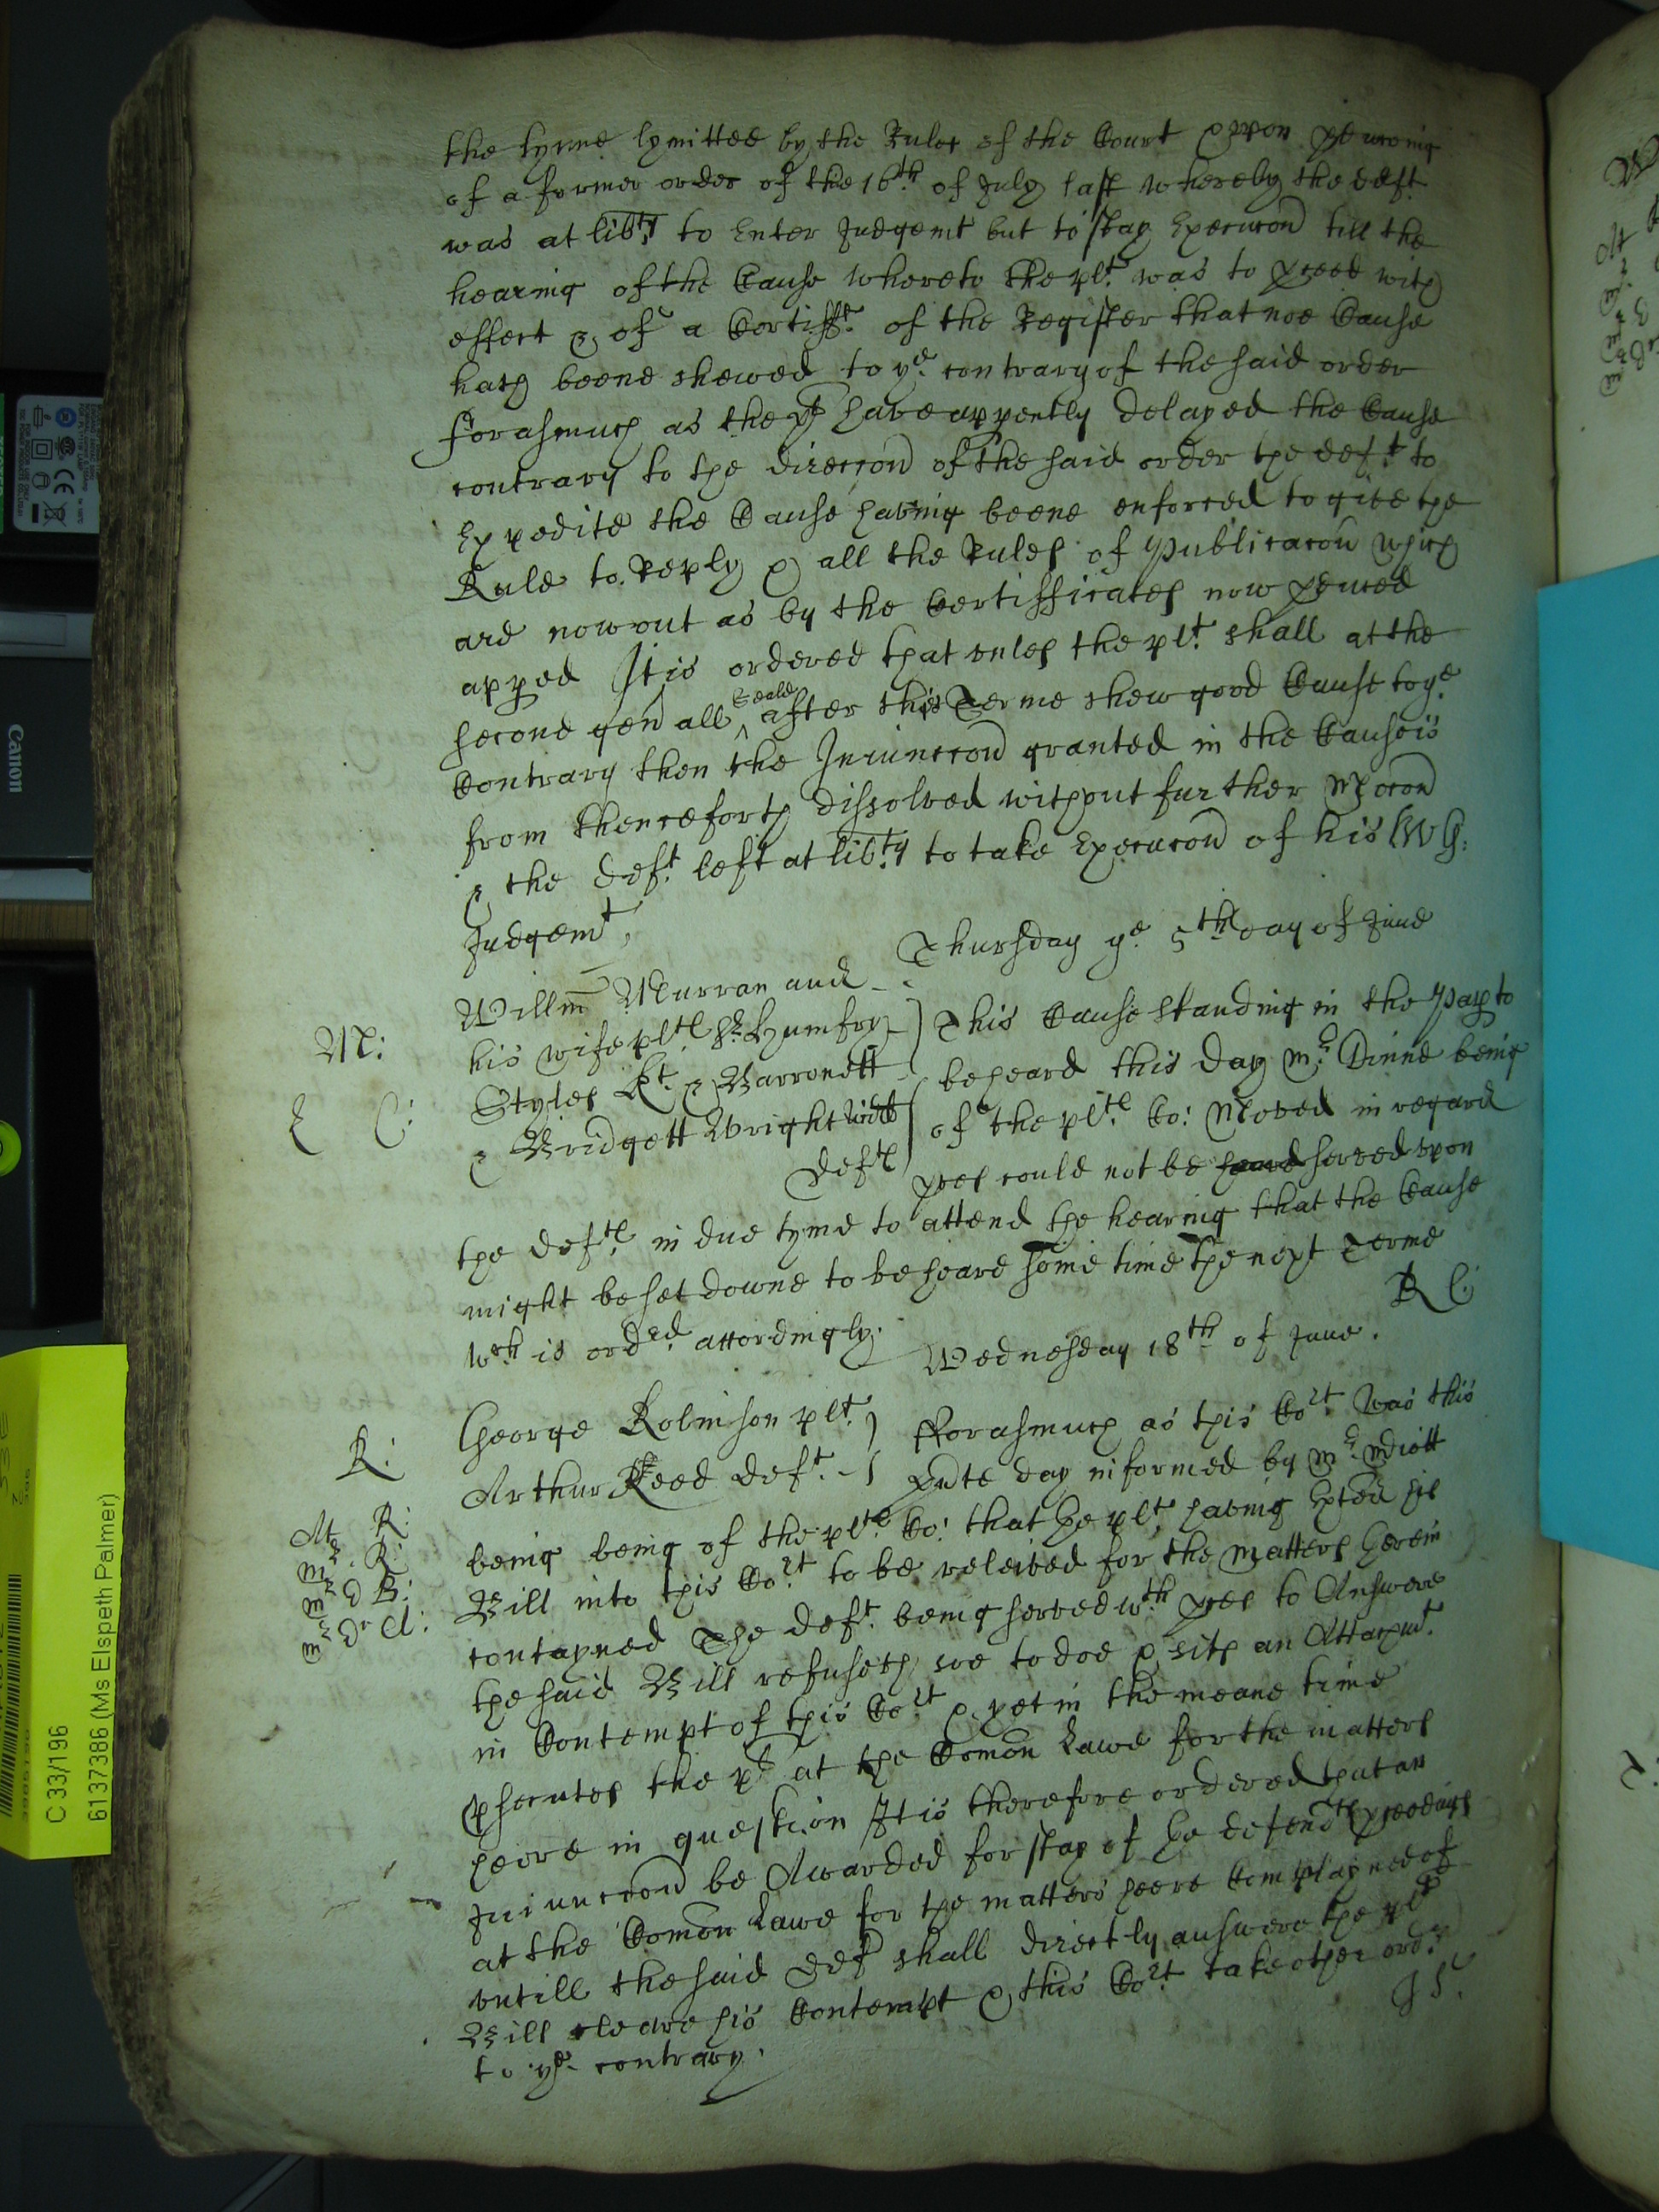 the tyme lymitted by the Rules of the Court & upon pduceing
of a former order of the 16th of July last whereby the deft
was at libty to Enter Judgemt but to stay Execucon till the
hearing of the Cause whereto the plt. was to pceed with
effect & of a Certifft. of the Register that noe Cause
hath beene shewed to ye. contrary of the said order
forasmuch as the plt have appently delayed the Cause
contrary to the direccon of the said order the deft. to
Expedite the Cause haveing beene enforced to give the
Rule to Reply & all the Rules of Publicacon which
are now out as by the Certifficates now pduced
apped It is ordered that unles the plt. shall at the
second genall Seale after this Terme shew good Cause to ye
Contrary then the Iniunccon granted in the Cause is
from thenceforth dissolved without further Mocon
& the deft. left at libty to take Execucon of his
Judgemt,
Thursday ye. 5th day of June
M:
E C:
Willm Murran and
his wife plts Sr. Humfry
Styles Kt. & Barronett
& Bridgett Wright
Defts
This Cause standing in the Pap to
be heard this day Mr. Dinne being
of the plts. Co: Moved in regard
pces could not be heard served upon
the defts. in due tyme to attend the hearing that the Cause
might be set downe to be heard some time the next Terme
wch is ordd. accordingly.
R C:
Wednesday 18th of June.
R:
At R:
mr. R:
mr D B:
mr Dr A:
George Robinson plt.
Arthur Reed deft.
Forasmuch as this Cort. was this
pnte day informed by Mr.
being being of the plts Co: that the plt. haveing Exted his
Bill into this Cort. to be releived for the matters herein
contayned The deft. being served wth pces to Answere
the said Bill refuseth soe to doe & sitts an Attachmt.
in Contempt of this Cort & yet in the meane time
psecutes the plt at the Comon Lawe for the matters
heere in question It is therefore ordered that an
Iniunccon be Awarded for stay of the defendts pceedings
at the Comon Lawe for the matters heere Complayned of
untill the said Deft shall directly answere the plts
Bill cleare his Contempt & this Cort. take other ordr.
to ye. contrary.
J S.
Canon
C 33/196
6137386 (Ms Elspeth Palmer)